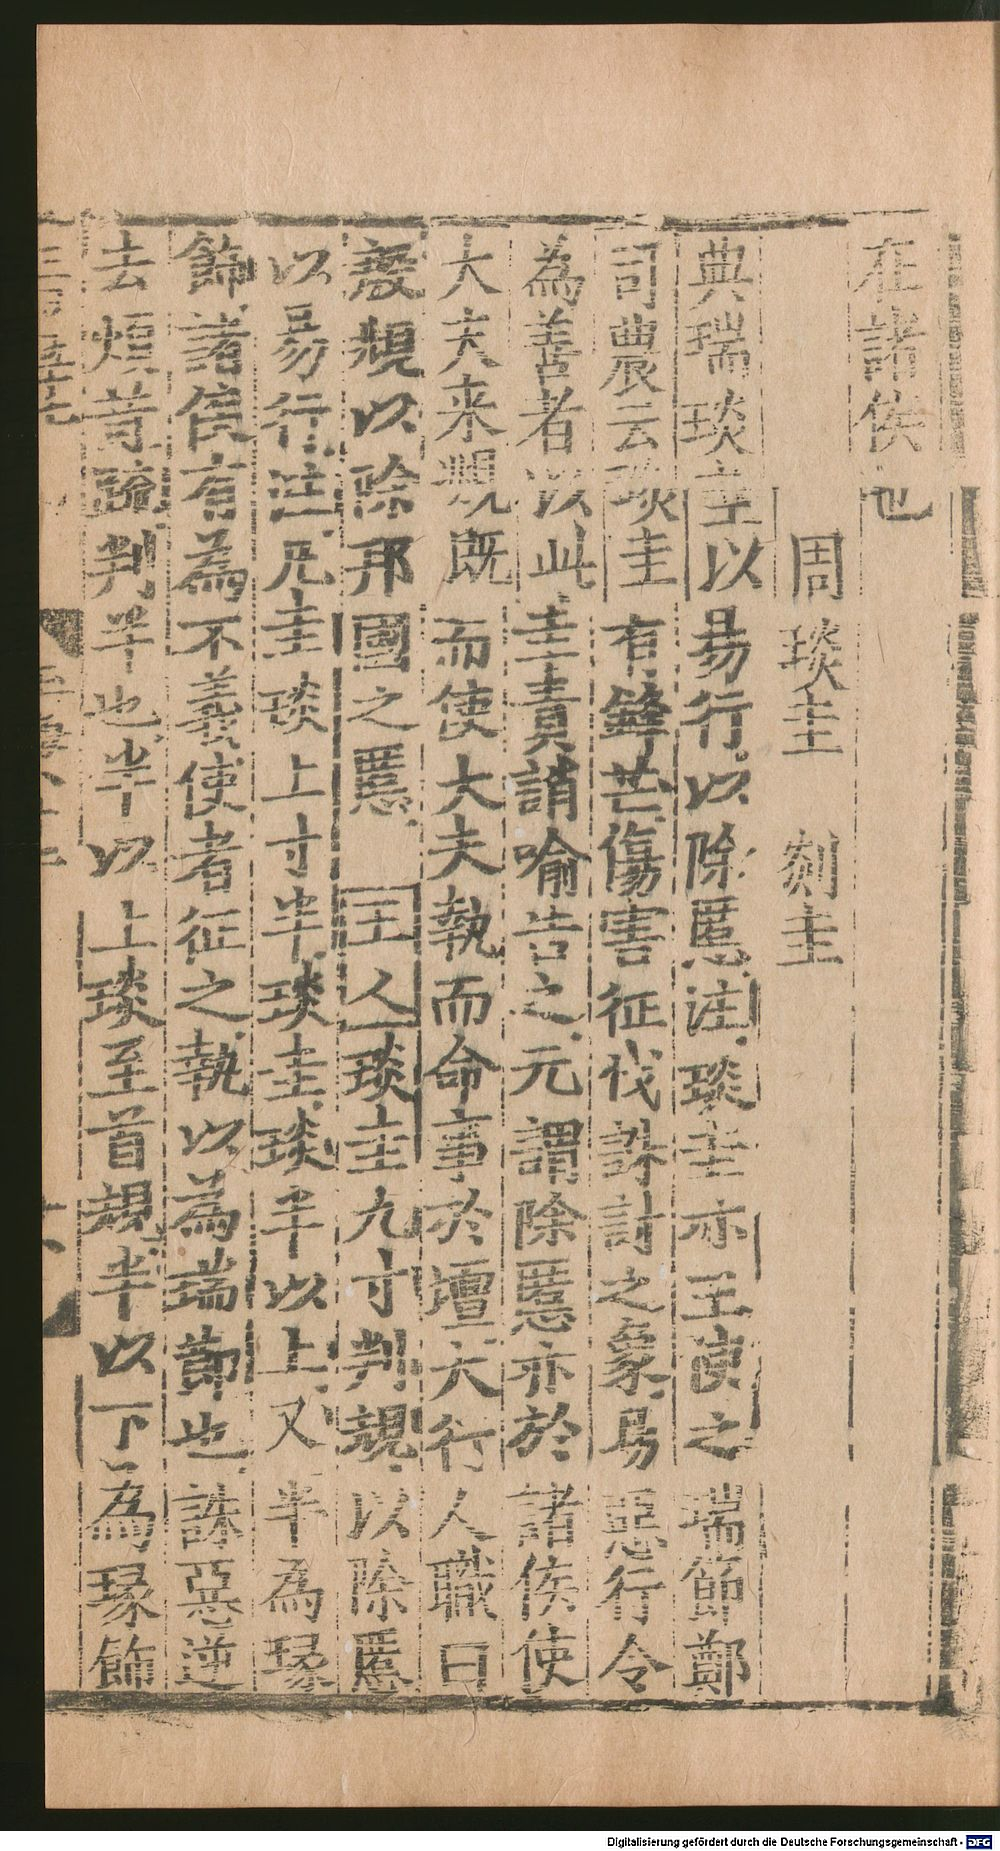 在諸侯也
周琰圭 剡圭
典瑞琰圭以易行以除慝注琰圭亦王使之瑞節鄭
司農云琰圭有鋒芒傷害征伐誅討之象易惡行令
為善者以此圭責誚喻告之元謂除慝亦於諸侯使
大夫来覜既而使大夫執而命事於壇大行人職曰
殷覜以除邦國之慝 王人琰圭九寸判規以除慝
以易行注凡圭琰上寸半琰圭琰半以上又半為瑑
飾諸侯有為不義使者征之執以為瑞節也誅惡逆
去煩苛疏判半也半以上琰至首規半以下為瑑飾
Digitalisierung gefördert durch die Deutsche Forschungsgemeinschaft - DFG